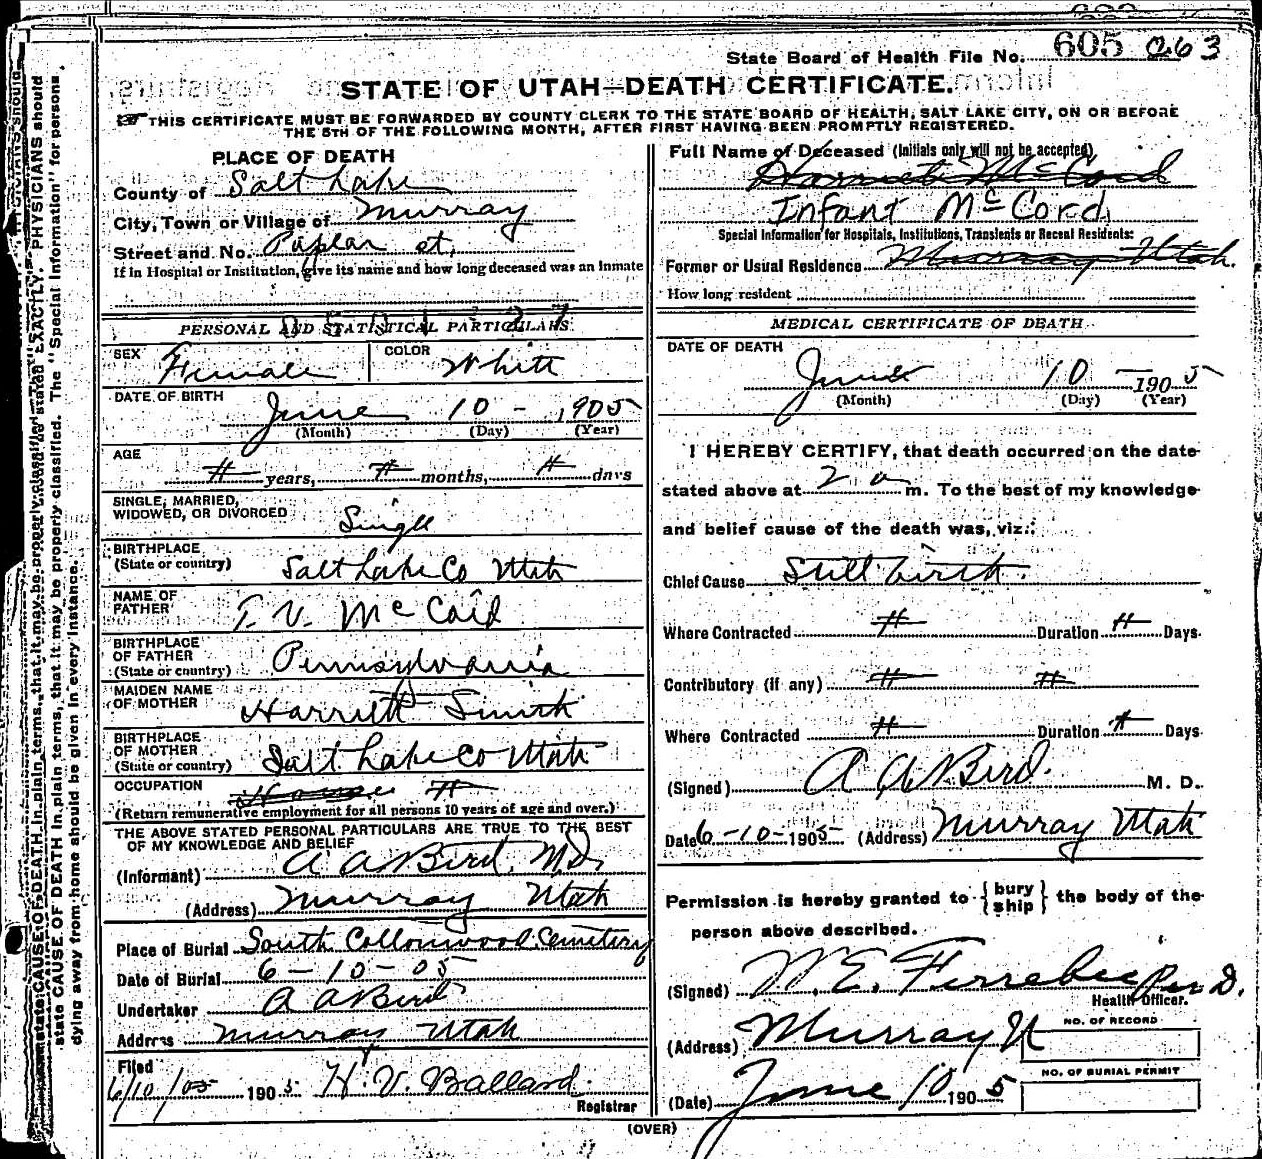 State Board of Health File No. 605 263
STATE OF UTAH—DEATH CERTIFICATE.
THIS CERTIFICATE MUST BE FORWARDED BY COUNTY CLERK TO THE STATE BOARD OF HEALTH, SALT LAKE CITY, ON OR BEFORE
THE 5TH OF THE FOLLOWING MONTH, AFTER FIRST HAVING BEEN PROMPTLY REGISTERED.
PLACE OF DEATH
County of Salt Lake
City, Town or Village of Murray
Street and No. Poplar st.
If in Hospital or Institution, give its name and how long deceased was an inmate
PERSONAL AND STATISTICAL PARTICULARS
SEX Female COLOR White
DATE OF BIRTH June 10 - 1905
(Month) (Day) (Year)
AGE
years, months, days
SINGLE, MARRIED,
WIDOWED, OR DIVORCED Single
BIRTHPLACE
(State or country) Salt Lake Co Utah
NAME OF
FATHER T. V. McCord
BIRTHPLACE
OF FATHER
(State or country) Pennsylvania
MAIDEN NAME
OF MOTHER Harriett Smith
BIRTHPLACE
OF MOTHER
(State or country) Salt Lake Co Utah
OCCUPATION
(Return remunerative employment for all persons 10 years of age and over.)
THE ABOVE STATED PERSONAL PARTICULARS ARE TRUE TO THE BEST
OF MY KNOWLEDGE AND BELIEF
(Informant) A A Bird, M.D.
(Address) Murray Utah
Place of Burial South Cottonwood Cemetery
Date of Burial 6-10-05
Undertaker A A Bird
Address Murray Utah
Filed
6/10/05 1905 H. V. Ballard.
Registrar
Full Name of Deceased (Initials only will not be accepted)
Harriett McCord
Infant McCord,
Special Information for Hospitals, Institutions, Transients or Recent Residents:
Former or Usual Residence Murray Utah.
How long resident
MEDICAL CERTIFICATE OF DEATH
DATE OF DEATH
June 10 - 1905
(Month) (Day) (Year)
I HEREBY CERTIFY, that death occurred on the date
stated above at 2 a m. To the best of my knowledge
and belief cause of the death was, viz.:
Chief Cause Still birth.
Where Contracted Duration Days.
Contributory (if any)
Where Contracted Duration Days.
(Signed) A A Bird. M. D.
Date 6-10-1905 (Address) Murray Utah
Permission is hereby granted to {bury ship} the body of the
person above described.
(Signed) W. E. Ferrebee Per D.
Health Officer.
(Address) Murray U
NO. OF RECORD
NO. OF BURIAL PERMIT
(Date) June 10 1905
(OVER)
state CAUSE OF DEATH in plain terms, that it may be properly classified. The "Special Information" for persons
dying away from home should be given in every instance.